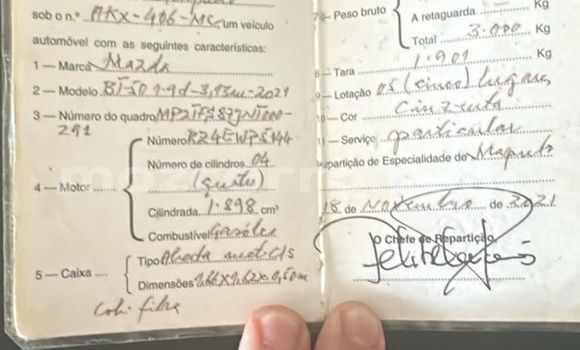 sob o n.º AKX-406-MC, um veículo
automóvel com as seguintes características:
1 — Marca Mazda
2 — Modelo BT-50 1.9d-3,13m-2021
3 — Número do quadro
291
Número
Número de cilindros 04
(quatro)
4 — Motor
Cilindrada 1.898 cm³
Combustível Gasóleo
Tipo Aberta
5 — Caixa
Dimensões
cob. fibra
Peso bruto
A retaguarda Kg
Total 3.000 Kg
8 — Tara 1.901 Kg
9 — Lotação 05 (cinco) lugares
10 — Cor Cinzenta
11 — Serviço particular
Repartição de Especialidade de Maputo
18 de Novembro de 2021
O Chefe de Repartição